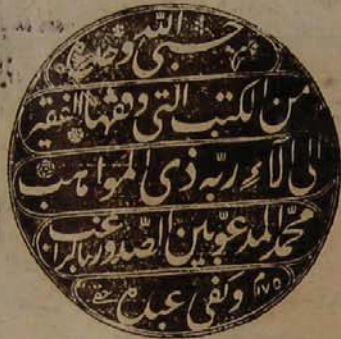 حسبي الله وحده
من الكتب التى وقفها الفقير
الى آلاء ربّه ذى المواهب
محمّد المدعوّ بين الصّدور بالراغب
وكفى عبده ١١٧٥